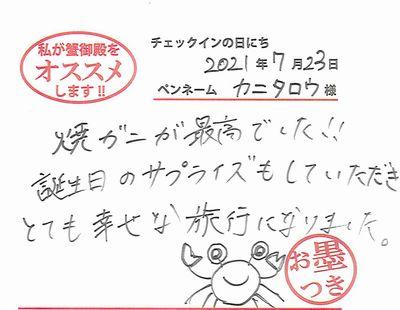 私が蟹御殿を
オススメ
します!!
チェックインの日にち
2021年7月23日
ペンネーム カニタロウ 様
焼ガニが最高でした!!
誕生日のサプライズもしていただき
とても幸せな旅行になりました。
お墨
つき